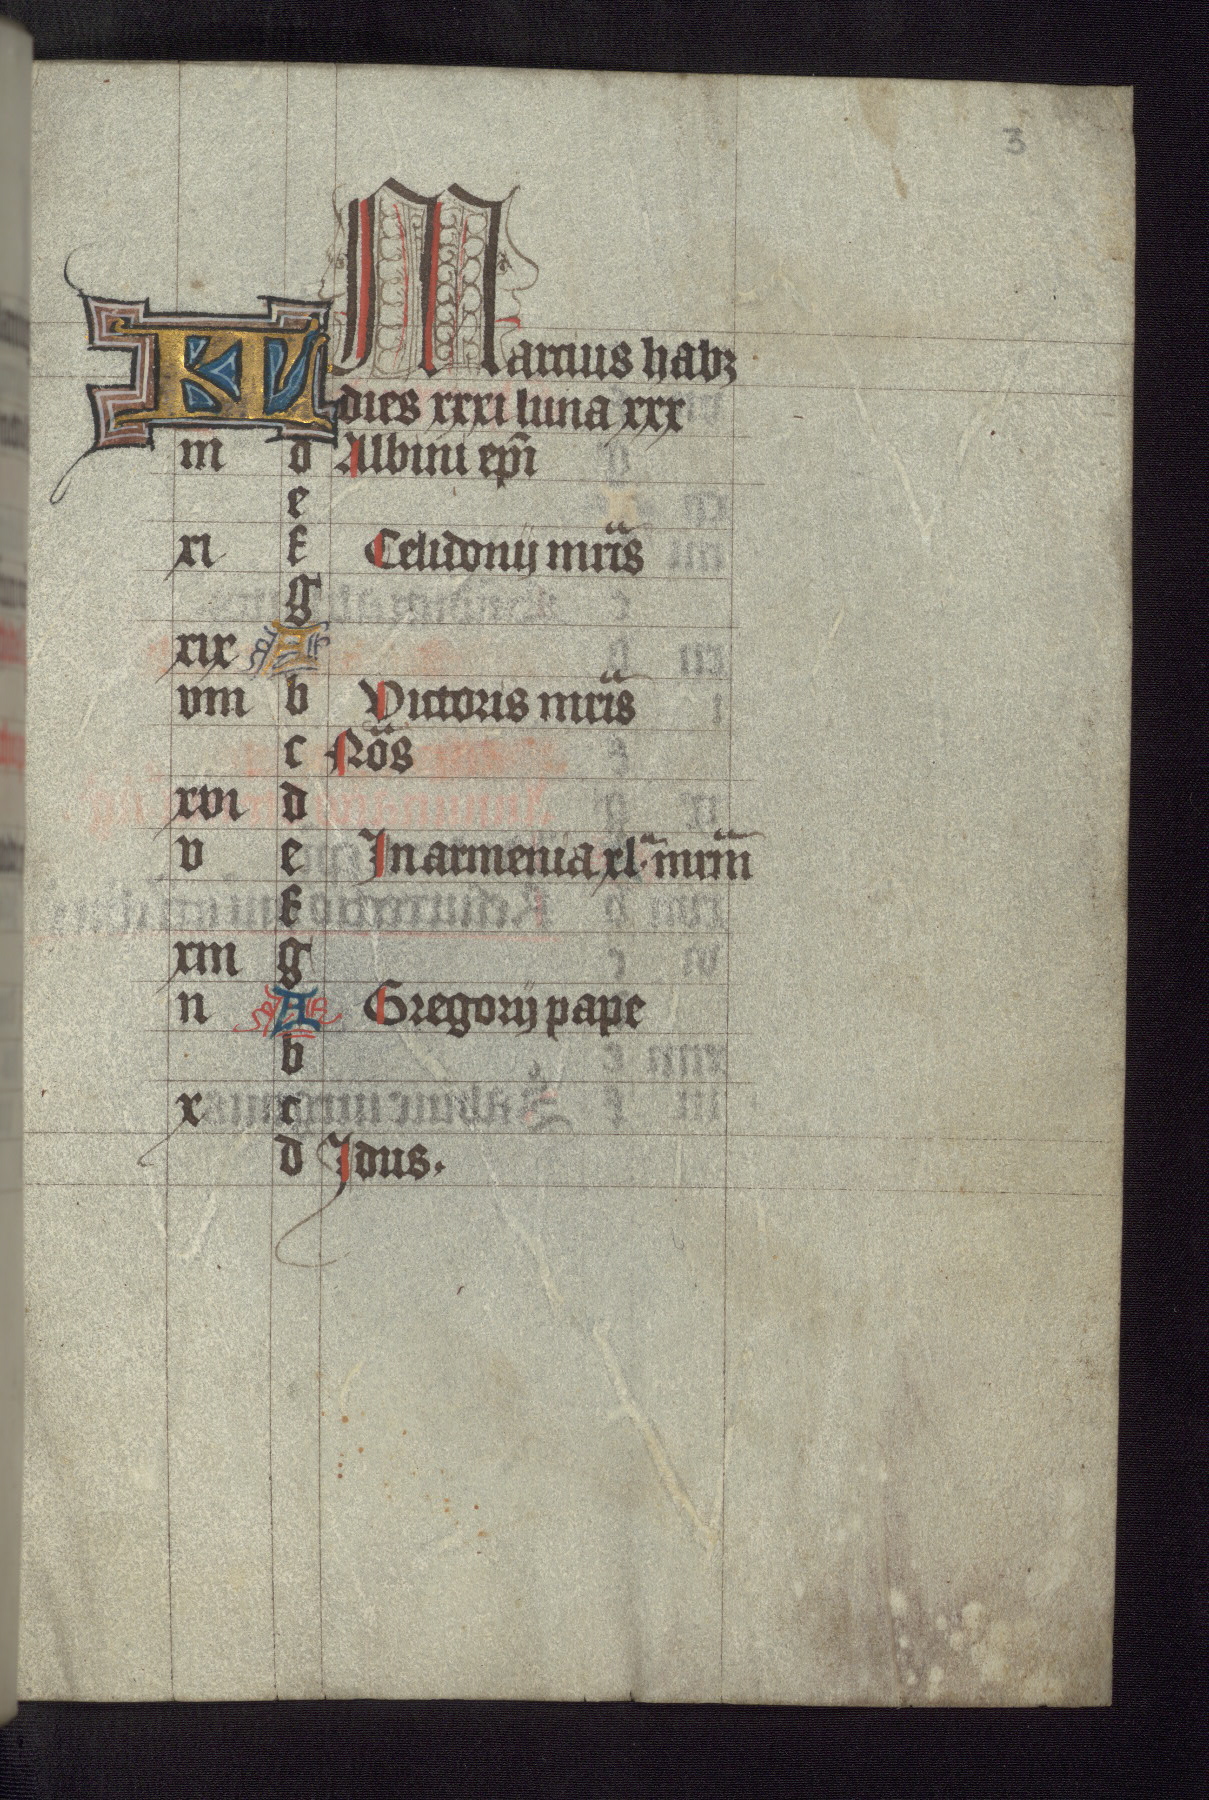 3
KL Marcius habꝫ
dies xxxi luna xxx
iii d Albini ep̄i
e
xi f Celidonij mr̄is
g
xix A
viii b Victoris mr̄is
c Nōs
xvi d
v e In armenia xl.ᵃ mr̄m̄
f
xiii g
ii A Gregorij pape
b
x c
d Idus.